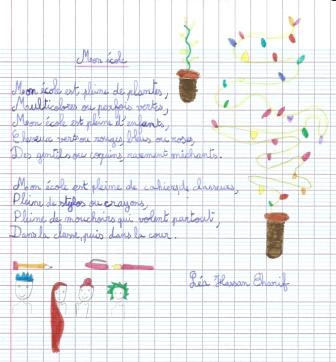 Mon école
Mon école est pleine de plantes,
Multicolores ou parfois vertes,
Mon école est pleine d'enfants,
Cheveux verts ou rouges, bleus ou roses,
Des gentils ou coquins, rarement méchants.
Mon école est pleine de cahiers, de classeurs,
Pleine de stylos ou crayons,
Pleine de mouchoirs qui volent partout,
Dans la classe, puis dans la cour.
Léa Hassan Chanif